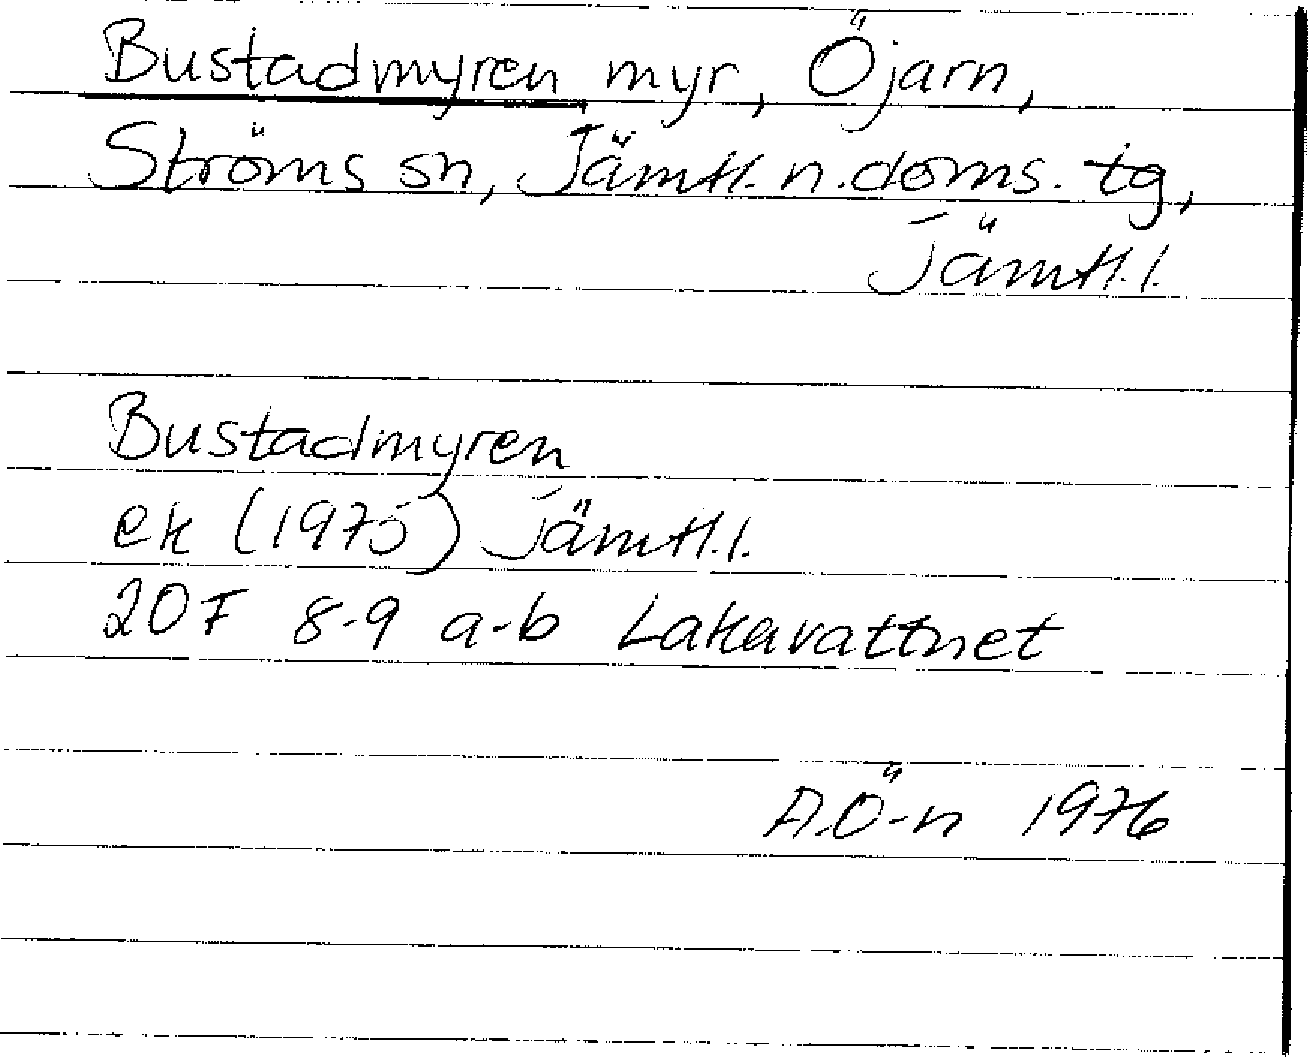 Bustadmyren myr, Öjarn,
Ströms sn, Jämtl. n. doms. tg,
Jämtl.l.
Bustadmyren
ek (1975) Jämtl.l.
20F 8-9 a-b Lakavattnet
A.Ö-n 1976